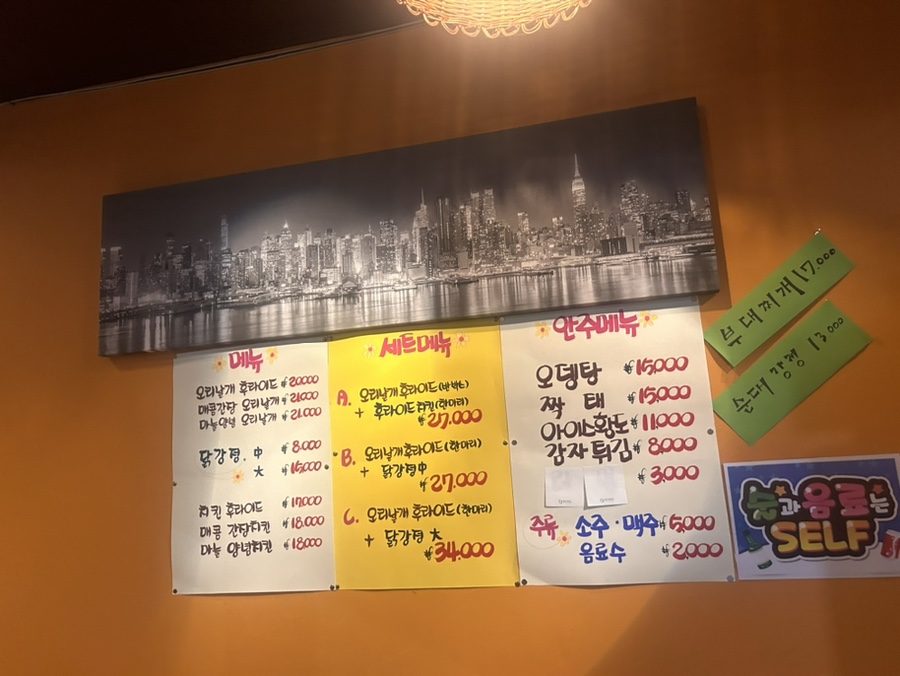 메뉴
오리날개 후라이드 ₩20,000
매콤간장 오리날개 ₩21,000
마늘양념 오리날개 ₩21,000
닭강정. 中 ₩8,000
大 ₩15,000
치킨 후라이드 ₩17,000
매콤 간장치킨 ₩18,000
마늘 양념치킨 ₩18,000
세트메뉴
A. 오리날개후라이드(반박스)
+ 후라이드치킨(한마리)
₩27,000
B. 오리날개후라이드(한마리)
+ 닭강정 中
₩27,000
C. 오리날개 후라이드(한마리)
+ 닭강정 大
₩34,000
안주메뉴
오뎅탕 ₩15,000
짝 태 ₩15,000
아이스황도 ₩11,000
감자튀김 ₩8,000
₩3,000
주류 소주·맥주 ₩5,000
음료수 ₩2,000
부대찌개 17.000
순대 강정 13.000
술과 음료는
SELF